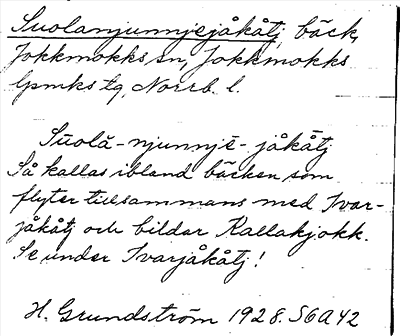 Suolanjunnjejåkåtj, bäck,
Jokkmokks sn, Jokkmokks
lpmks tg, Norrb. l.
Suolă-njunnjē-jåkåtj
Så kallas ibland bäcken som
flyter tillsammans med Tvar-
jåkåtj och bildar Kallakjokk.
Se under Tvarjåkåtj!
H. Grundström 1928. S6A42